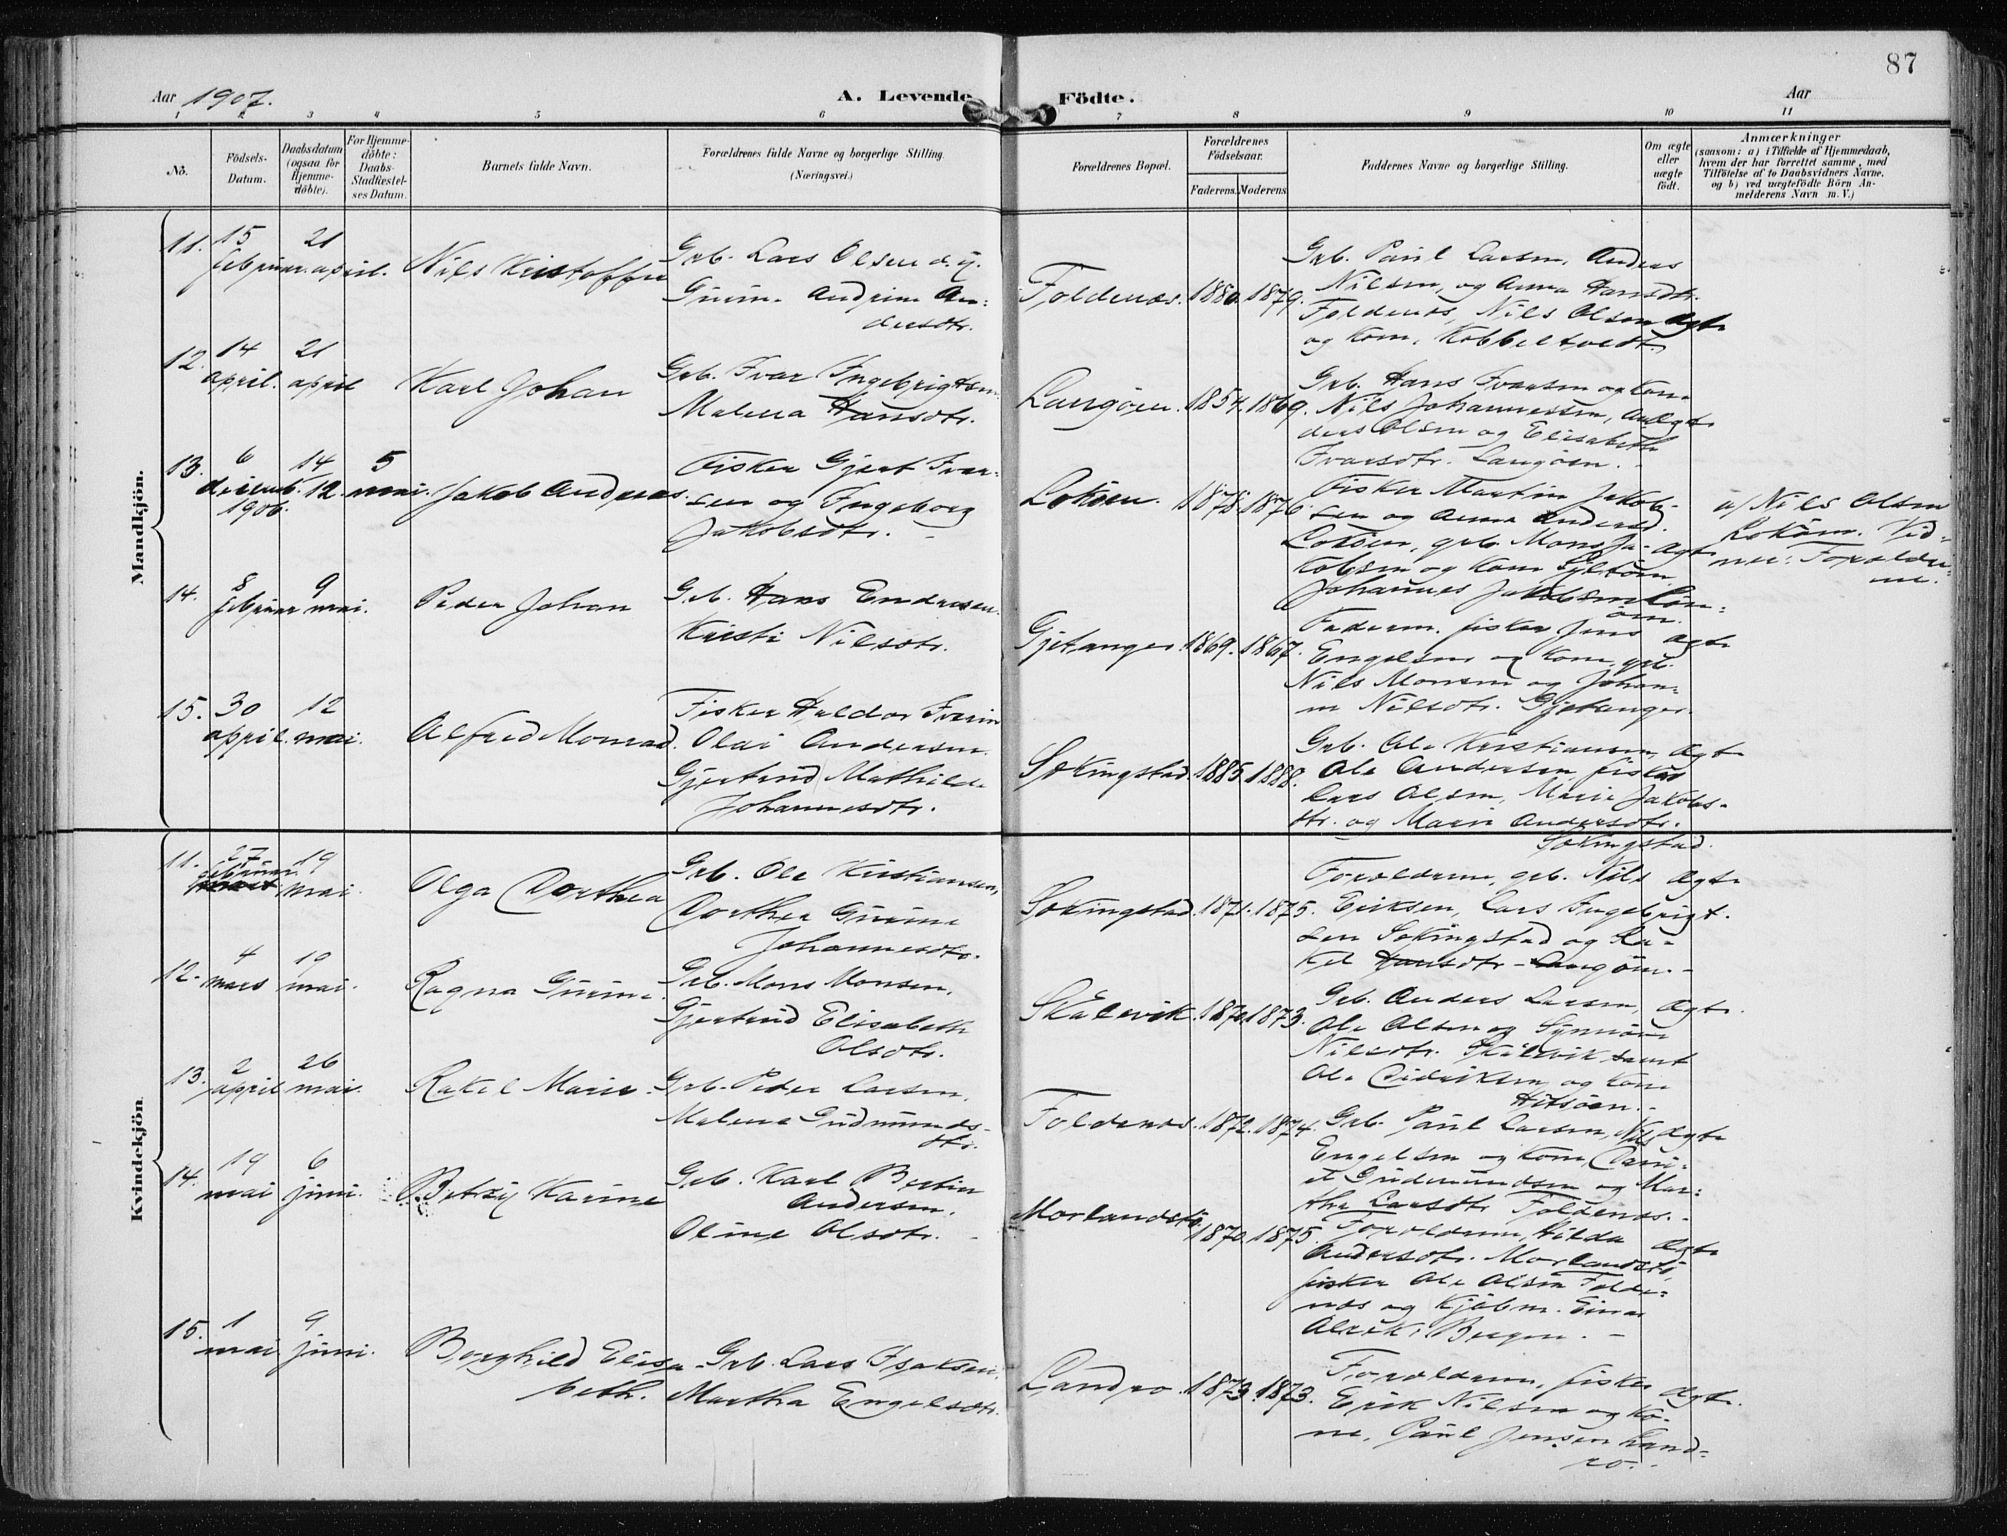 87
Aar 1907.
A. Levende Födte.
Aar
1 2 3 4 5 6 7 8 9 10 11
No.
Födsels-
Datum.
Daabsdatum
(ogsaa for
Hjemme-
döbte).
For Hjemme-
döbte:
Daabs-
Stadfæstel-
ses Datum.
Barnets fulde Navn.
Forældrenes fulde Navne og borgerlige Stilling
(Næringsvei.)
Forældrenes Bopæl.
Forældrenes
Födselsaar.
Faderens.
Moderens
Faddernes Navne og borgerlige Stilling.
Om ægte
eller
uægte
födt.
Anmærkninger
(saasom: a) i Tilfælde af Hjemmedaab,
hvem der har forrettet samme, med
Tilföielse af to Daabsvidners Navne,
og b) ved uægtefödte Börn An-
melderens Navn m. V.)
Mandkjön.
11. 15 februar. 21 april. Nils Kristoffer
Grb. Lars Olsen
Andrine An-
dersdtr.
Foldenæs. 1880. 1879.
Grb. Paul Larsen, Anders
Nilsen, og Anna Hansdtr.
Foldenæs, Nils Olsen
og kone, Kobbeltvedt.
Ægte
12. 14 april. 21 april Karl Johan
Grb. Ivar Ingebrigtsen
Malena Hansdtr.
Langöen. 1854. 1869.
Grb. Hans Ivarsen og kone
Nils Johannessen, An-
ders Olsen og Elisabeth
Ivarsdtr. Langöen.
Ægte
13. 6 decemb. 1906. 14 12. 5 mai. Jakob Andreas.
Fisker Gjert Ivar-
sen og Ingeborg
Jakobsdtr.
Loköen. 1878. 1876.
Fisker Martin Jakob-
sen og Anna Andersd.
Loköen, grb. Mons Ja-
kobsen og kone
Johannes Jakobsen
Ægte
a/ Nils Olsen
Loköen. Vid-
ner: Forældre-
ne.
14. 8 februar 9 mai. Peder Johan
Grb. Hans Endresen.
Kirsti Nilsdtr.
Gjetanger. 1869. 1867.
Faderen. fisker Jens
Engelsen og kone, grb.
Nils Monsen og Johan-
ne Nilsdtr. Gjetanger.
Ægte
15. 30 april. 12 mai. Alfred Monrad.
Fisker Haldor
Olai Andersen.
Gjertrud Mathilde
Johannesdtr.
Sekingstad. 1885. 1888.
Grb. Ole Kristiansen,
Ole Andersen, fisker
Lars Olsen, Marie Jakobs-
dtr. og Marie Andersdtr.
Sekingstad.
Ægte
Kvindekjön
11. 27 februar 19 mai. Olga Dorthea
Grb. Ole Kristiansen,
Dorthea Gurine
Johannesdtr.
Sekingstad. 1871. 1875.
Forældrene, grb. Nils
Eriksen, Lars Ingebrigt-
sen Sekingstad og Ra-
kel Hansdtr - Langöen.
Ægte
12. 4 mars 19 mai. Ragna Gurine.
Grb. Mons Monsen,
Gjertrud Elisabeth
Olsdtr.
Skalevik. 1870. 1873.
Grb. Anders Larsen,
Ole Olsen og Synnöve
Nilsdtr. Skalevik samt
Ole Didriksen og kone
Hitsöen.
Ægte.
13. 2 april 26 mai. Rakel Marie.
Grb. Peder Larsen.
Malena Gudmunds-
dtr.
Foldenæs. 1872. 1874.
Grb. Paul Larsen, Nils
Engelsen og kone, Dani-
el Gudemundsen og Mar-
tha Larsdtr Foldenæs.
Ægte
14. 19 mai 6 juni. Betzy Karine
Grb. Karl Bertin
Andersen.
Oline Olsdtr.
Morlandstö. 1870. 1875.
Forældrene, Hilda
Andersdtr. Morlandstö,
fisker Ole Olsen Folde-
næs og Kjöbm. Einar
Bergen.
Ægte
15. 1 mai 9 juni. Borghild Elisa-
beth.
Grb. Lars Isaksen.
Martha Engelsdtr.
Landro. 1873. 1873.
Forældrene, fisker
Erik Nilsen og ko-
ne, Paul Jensen Land-
ro.
Ægte.